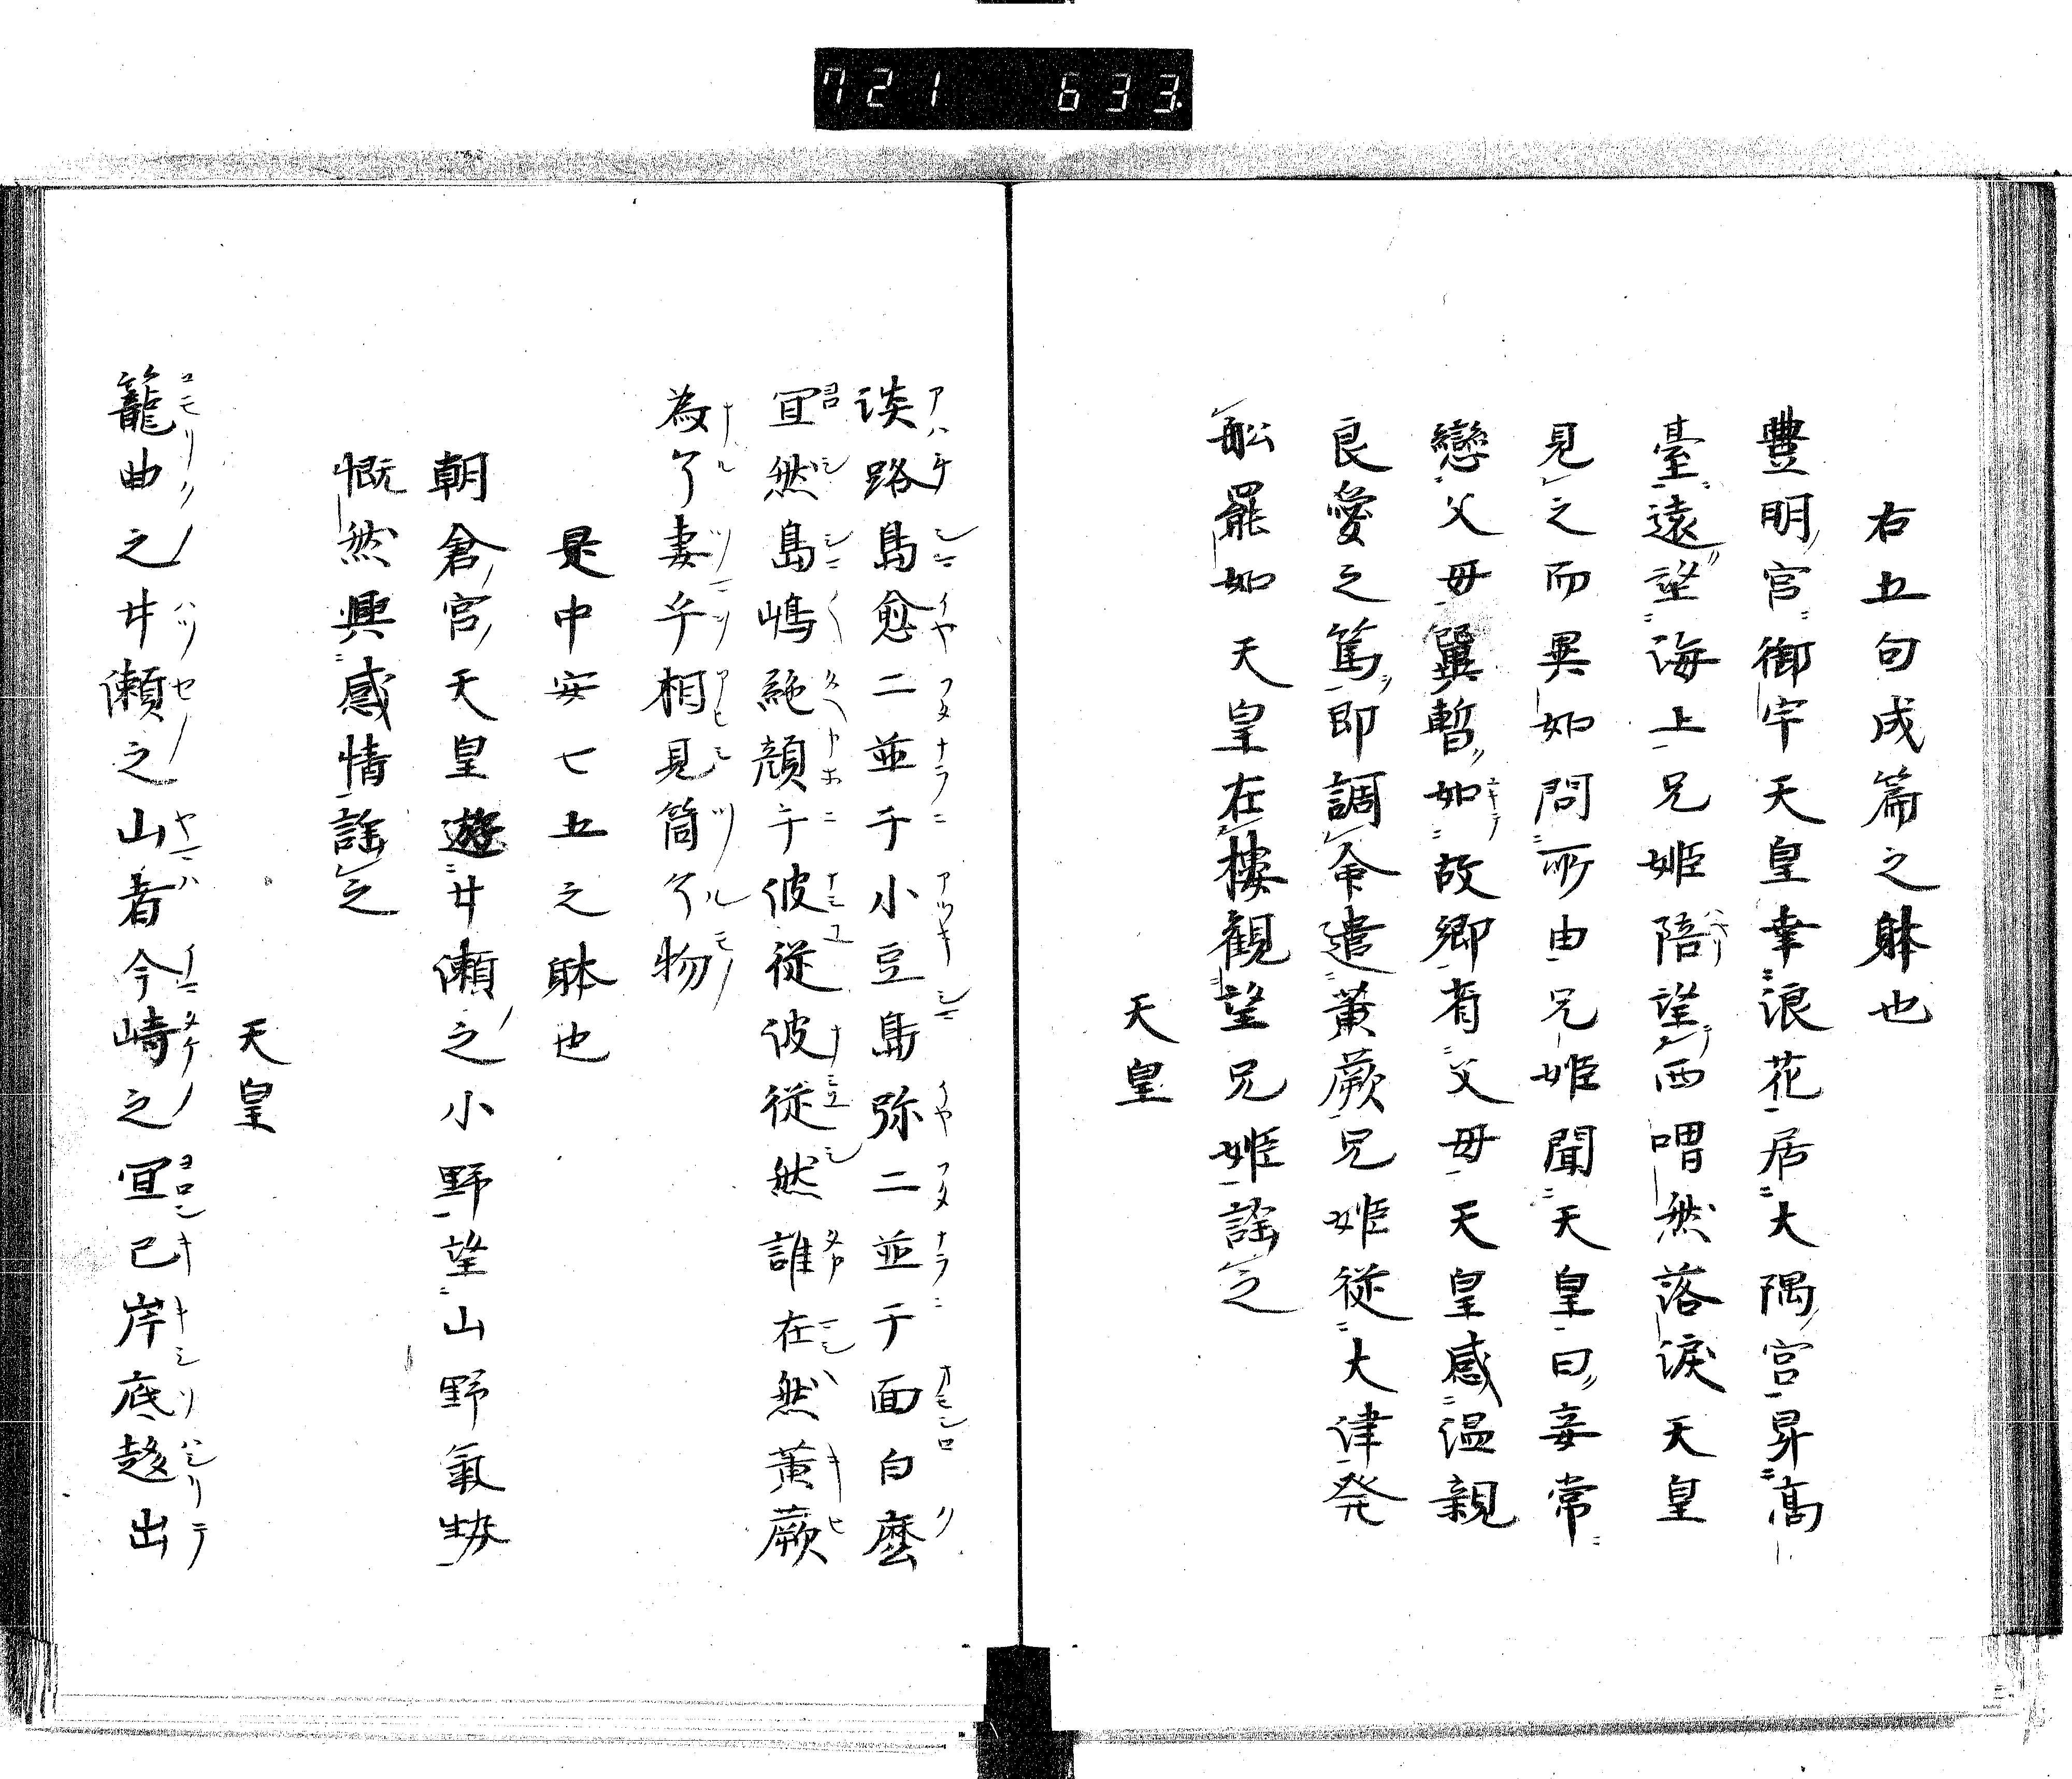 721 633
右五句成篇之躰也
豊明宮御宇天皇幸浪花居大隅宮昇髙
臺遠望海上兄姫陪望西喟然落淚天皇
見之而異如問所由兄姫聞天皇曰妾常
戀父毋冀暫如故郷有父毋天皇感温親
良愛之篤即調命遣黄蕨兄姫従大津発
舩罷如天皇在樓觀望兄姫謡之
天皇
淡路島愈二並于小豆島弥二並于面白麼
宜然島嶋絶顔于彼従彼従然誰在然黄蕨
為了妻乎相見筒了物
是中安七五之躰也
朝倉宮天皇遊廿瀬之小野望山野氣㔟
慨然興感情謡之
天皇
籠曲之廿瀬之山者今崎之宜已岸底趍出